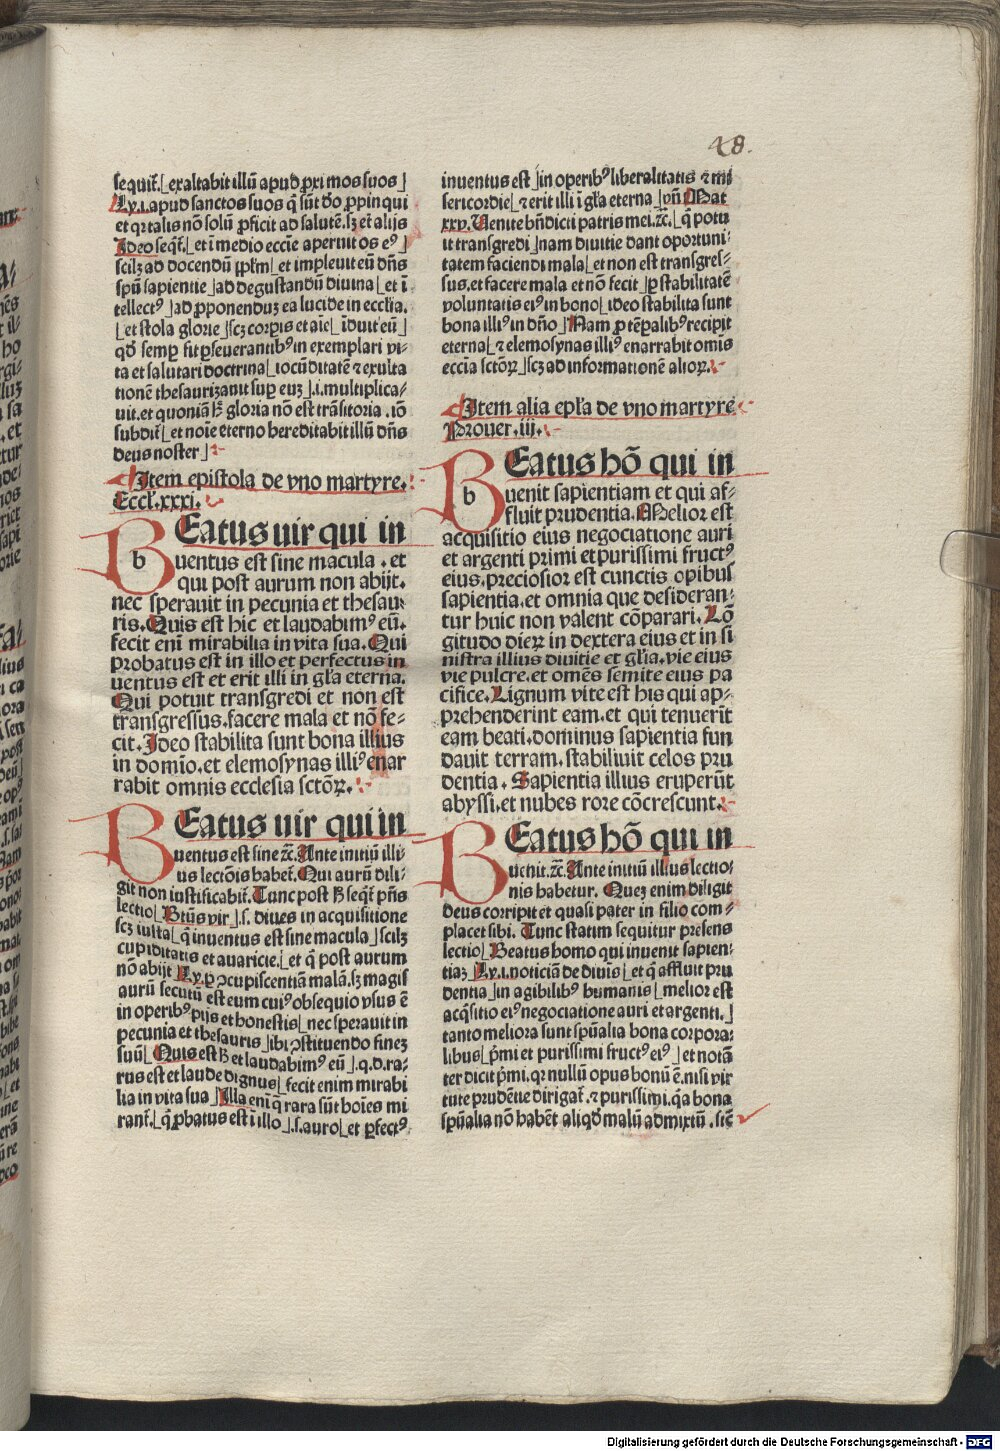 48.
sequit᷑.⌊exaltabit illū apud ꝓximos suos⌋
Ly.i.apud sanctos suos q̄ sūt dō ꝓpinqui
et qꝛ talis nō solū ꝓficit ad salutē.sꝫ et alijs
Ideo seqt᷑.⌊et ī medio eccīe aperuit os eꝰ⌋
scilꝫ ad docendū ppl̄m⌊et impleuit eū dn̄s
spū sapientie⌋ad degustandū diuina⌊et ī
tellectꝰ⌋ad ꝓponenduꝫ ea lucide in ecclīa.
⌊et stola glorie⌋scꝫ corpis et aīe⌊īduit eū⌋
qd̄ semꝑ fit ꝑseuerantibꝰ in exemplari vi-
ta et salutari doctrina⌊iocūditatē ⁊ exulta
tionē thesaurizauit suꝑ euꝫ⌋.i.multiplica-
uit.et quoniā hͦ gloria nō est trāsitoria.iō
subdit᷑⌊et noīe eterno hereditabit illū dn̄s
deus noster⌋
Item epistola de vno martyre.
Eccl̄.xxxi.
BEatus uir qui in
b
uentus est sine macula.et
qui post aurum non abijt.
nec sperauit in pecunia et thesau-
ris.Quis est hic et laudabimꝰ eū.
fecit enī mirabilia in vita sua.Qui
probatus est in illo et perfectus in
uentus est et erit illi in gl̄a eterna.
Qui potuit transgredi et non est
transgressus.facere mala et nō fe-
cit.Ideo stabilita sunt bona illius
in domīo.et elemosynas illiꝰ enar
rabit omnis ecclesia sctōꝝ.
BEatus uir qui in
uentus est sine ⁊c̄.Ante initiū illi-
us lectōnis habet᷑.Qui aurū dili-
git non iustificabit᷑.Tunc post hͦ seqt᷑ pn̄s
lectio⌊Btūs vir⌋.s.diues in acquisitione
scꝫ iusta⌊q̄ inuentus est sine macula⌋scilꝫ
cupiditatis et auaricie.⌊et q̄ post aurum
nō abijt⌋Ly.ꝑ ꝯcupiscentiam malā.sꝫ magis
aurū secutū est eum cuiꝰ obsequio vsus ē
in operibꝰ pijs et honestis⌊nec sperauit in
pecunia et thesauris⌋ibi ꝯstituendo fineꝫ
suū⌊Quis est hͦ et laudabimꝰ eū⌋.q.d.ra-
rus est et laude dignus⌊fecit enim mirabi
lia in vita sua⌋Illa enī q̄ rara sūt hoīes mi
rant᷑.⌊q̄ ꝓbatus est ī illo⌋.s.auro⌊et ꝑfectꝰ
inuentus est⌋in operibꝰ liberalitatis ⁊ mi
sericordie⌊⁊ erit illi ī gl̄a eterna⌋vn̄ Mat
xxv.Uenite bn̄dicti patris mei.⁊c̄.⌊q̄ potu
it transgredi⌋nam diuitie dant oportuni-
tatem faciendi mala⌊et non est transgres-
sus.et facere mala et nō fecit⌋ꝓ stabilitatē
voluntatis eiꝰ in bono⌊ideo stabilita sunt
bona illiꝰ in dn̄o⌋Nam ꝓ tēꝑalibꝰ recipit
eterna⌊⁊ elemosynas illiꝰ enarrabit omīs
eccīa sctōꝝ⌋scꝫ ad informationē alioꝝ.
Item alia epl̄a de vno martyre
Prouer.iii.
BEatus hō qui in
b
uenit sapientiam et qui af-
fluit prudentia.Melior est
acquisitio eius negociatione auri
et argenti primi et purissimi fructꝰ
eius.preciosior est cunctis opibus
sapientia.et omnia que desideran-
tur huic non valent cōparari.Lō
gitudo dieꝝ in dextera eius et in si
nistra illius diuitie et gl̄ia.vie eius
vie pulcre.et omēs semite eius pa
cifice.Lignum vite est his qui ap-
prehenderint eam.et qui tenuerit
eam beati.dominus sapientia fun
dauit terram.stabiliuit celos pru
dentia.Sapientia illius eruperūt
abyssi.et nubes rore cōcrescunt.
BEatus hō qui in
uenit.⁊c̄.Ante initiū illius lectio-
nis habetur. Queꝫ enim diligit
deus corripit et quasi pater in filio com-
placet sibi. Tunc statim sequitur presens
lectio⌊Beatus homo qui inuenit sapien-
tiaꝫ⌋Ly.i.noticiā de diuīs⌊et q̄ affluit pru
dentia⌋in agibilibꝰ humanis⌊melior est
acq̄sitio eiꝰ negociatione auri et argenti.⌋
tanto meliora sunt spūalia bona corpora-
libus⌊pͥmi et purissimi fructꝰ eiꝰ⌋et notā
ter dicit pͥmi.qꝛ nullū opus bonū ē.nisi vir
tute prudētie dirigat᷑.⁊ purissimi.q̄a bona
spūalia nō habēt aliqd̄ malū admixtū.sic̄
Digitalisierung gefördert durch die Deutsche Forschungsgemeinschaft - DFG